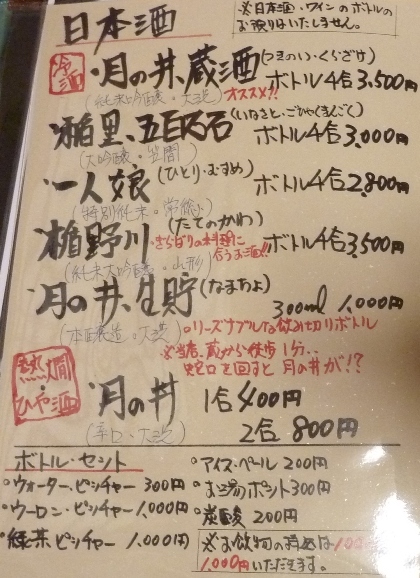 日本酒
※日本酒・ワインのボトルの
お預りはいたしません。
冷酒
・月の井、蔵酒(つきのい・くらざけ) ボトル4合 3,500円
(純米吟醸・大洗) オススメ!!
・稲里、五百万石(いなさと・ごひゃくまんごく) ボトル4合 3,000円
(大吟醸・笠間)
・一人娘(ひとり・むすめ) ボトル4合 2,800円
(特別純米・常総)
・楯野川(たてのかわ) ボトル4合 3,500円
きらばりの料理に
合うお酒!!
(純米大吟醸・山形)
・月の井、生貯(なまちょ) 300ml 1,000円
(本醸造・大洗) ○リーズナブルな飲み切りボトル
※当店、蔵から徒歩1分、、
蛇口を回すと月の井が!?
熱燗・ひや酒
・月の井 1合 400円
(辛口・大洗) 2合 800円
ボトル・セット
○ウォーター、ピッチャー 300円
○ウーロン・ピッチャー 1,000円
○緑茶ピッチャー 1,000円
○アイス・ペール 200円
○お湯ポット 300円
○炭酸 200円
※お飲物の持込は
1,000円いただきます。